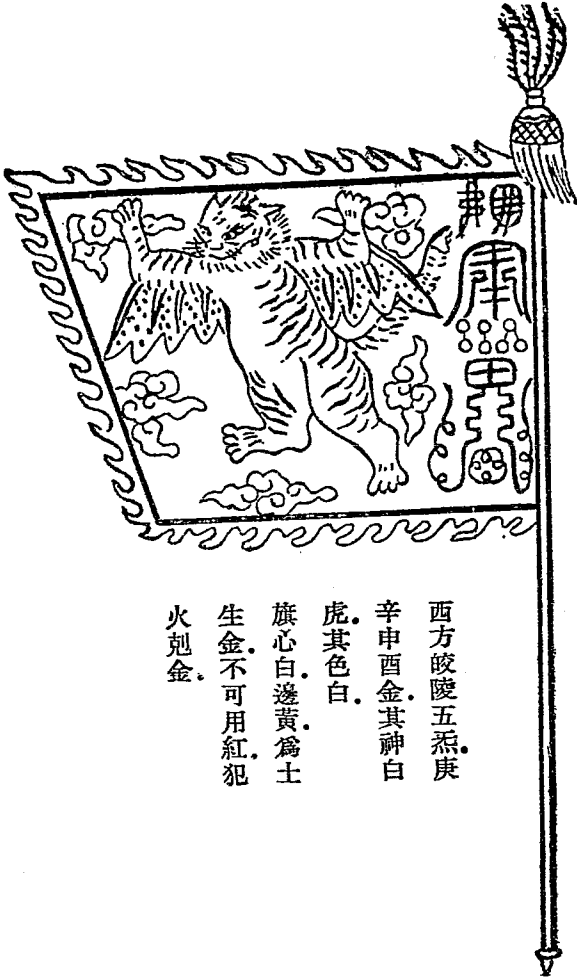 西方皎陵五炁.庚
辛申酉金.其神白
虎.其色白.
旗心白.邊黃.爲土
生金.不可用紅.犯
火剋金.